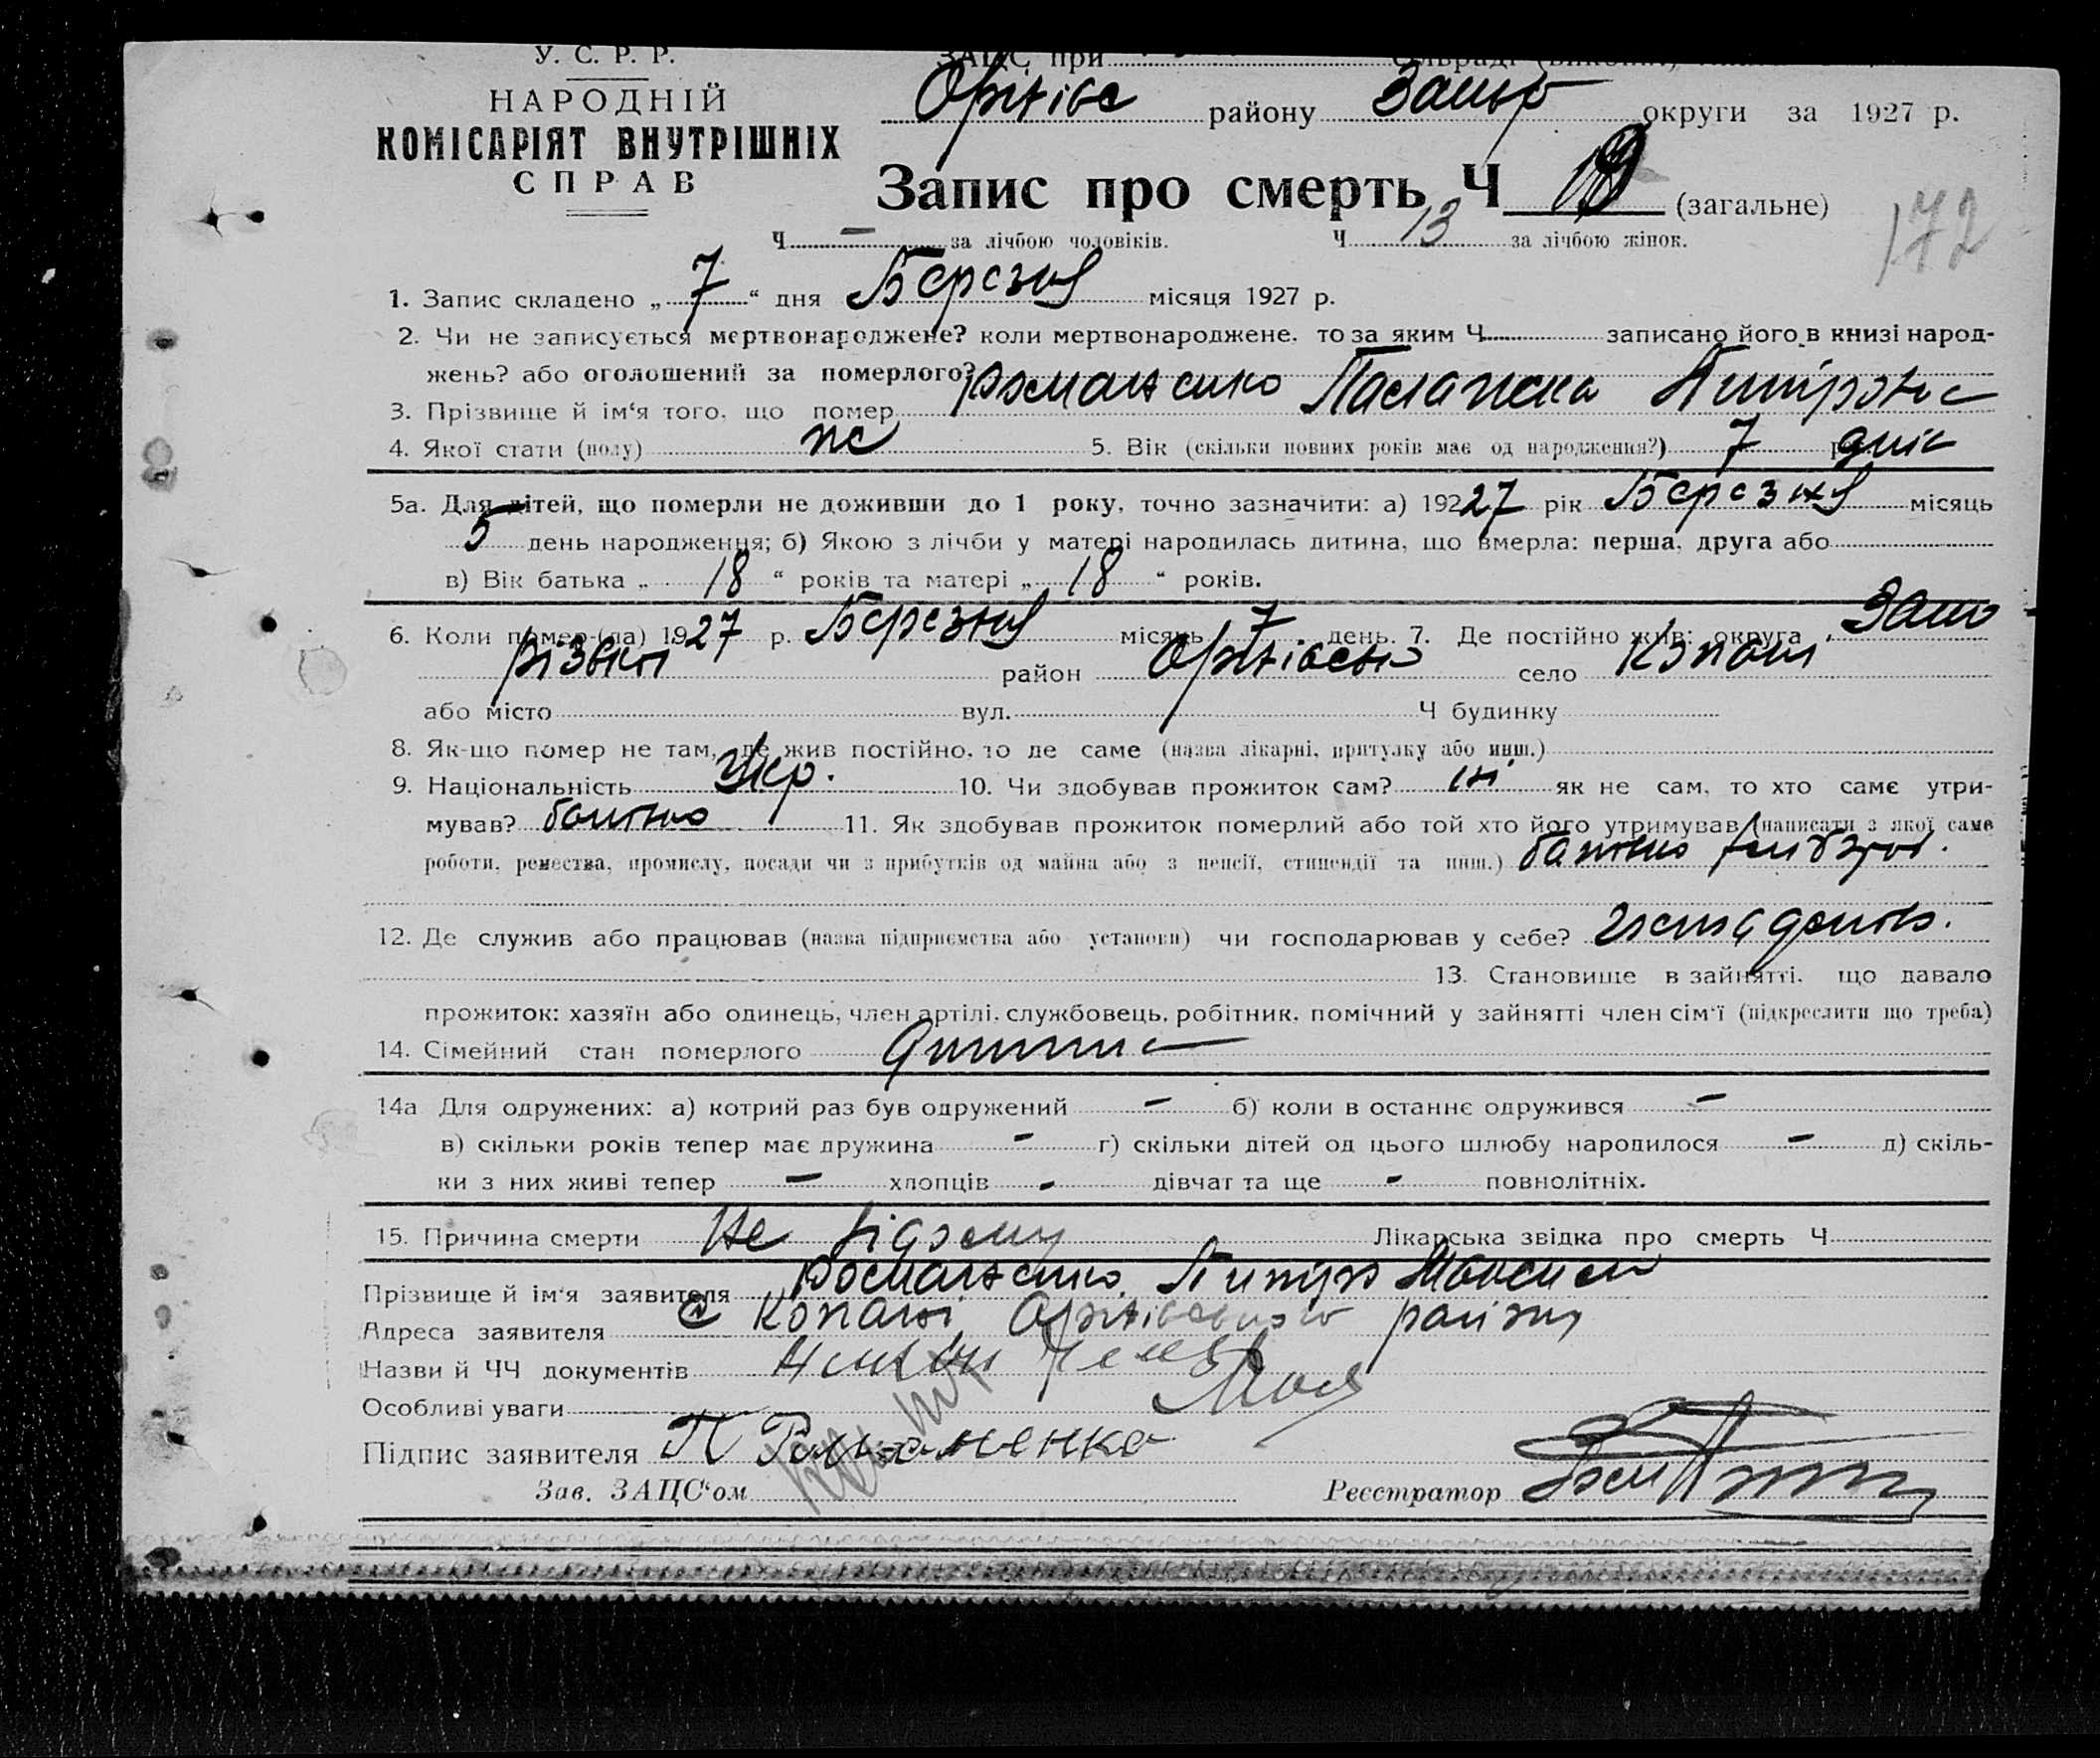 У. С. Р. Р.
НАРОДНІЙ
КОМІСАРІЯТ ВНУТРІШНІХ
СПРАВ
ЗАЦС при
Оржівс району округи за 1927 р.
Запис про смерть Ч (загальне)
172
Ч — за лічбою чоловіків. Ч 13 за лічбою жінок.
1. Запис складено „ 7 “ дня Березня місяця 1927 р.
2. Чи не записується мертвонароджене? коли мертвонароджене, то за яким Ч записано його в книзі народ-
жень? або оголошений за померлого?
3. Прізвище й ім‘я того, що помер Романенко Палажка Питровна
4. Якої стати (полу) жс 5. Вік (скільки повних років має од народження?) 7 дніс
5а. Для дітей, що померли не доживши до 1 року, точно зазначити: а) 192 27 рік Березня місяць
5 день народження; б) Якою з лічби у матері народилась дитина, що вмерла: перша, друга або
в) Вік батька „ 18 “ років та матері „ 18 “ років.
6. Коли помер-(ла) 19 27 р. Березня місяць 7 день. 7. Де постійно жив: округа Запо
ріжжі район Оржівсько село Копані
або місто вул. Ч будинку
8. Як-що помер не там, де жив постійно, то де саме (назва лікарні, притулку або инш.)
9. Національність Укр. 10. Чи здобував прожиток сам? ні як не сам, то хто саме утри-
мував? батько 11. Як здобував прожиток померлий або той хто його утримував (написати з якої саме
роботи, ремества, промислу, посади чи з прибутків од майна або з пенсії, стипендії та инш.) батько хлібороб.
12. Де служив або працював (назва підприємства або установи) чи господарював у себе?
13. Становище в зайнятті, що давало
прожиток: хазяїн або одинець, член артілі, службовець, робітник, помічний у зайнятті член сім‘ї (підкреслити що треба)
14. Сімейний стан померлого дитина
14а Для одружених: а) котрий раз був одружений — б) коли в останнє одружився —
в) скільки років тепер має дружина — г) скільки дітей од цього шлюбу народилося — д) скіль-
ки з них живі тепер — хлопців - дівчат та ще - повнолітніх.
15. Причина смерти Не відому Лікарська звідка про смерть Ч
Прізвище й ім‘я заявителя Романенко Питро Максим
Адреса заявителя с Копані Оржівського району
Назви й ЧЧ документів
Особливі уваги
Підпис заявителя П Романенко
Зав. ЗАЦС‘ом Реєстратор